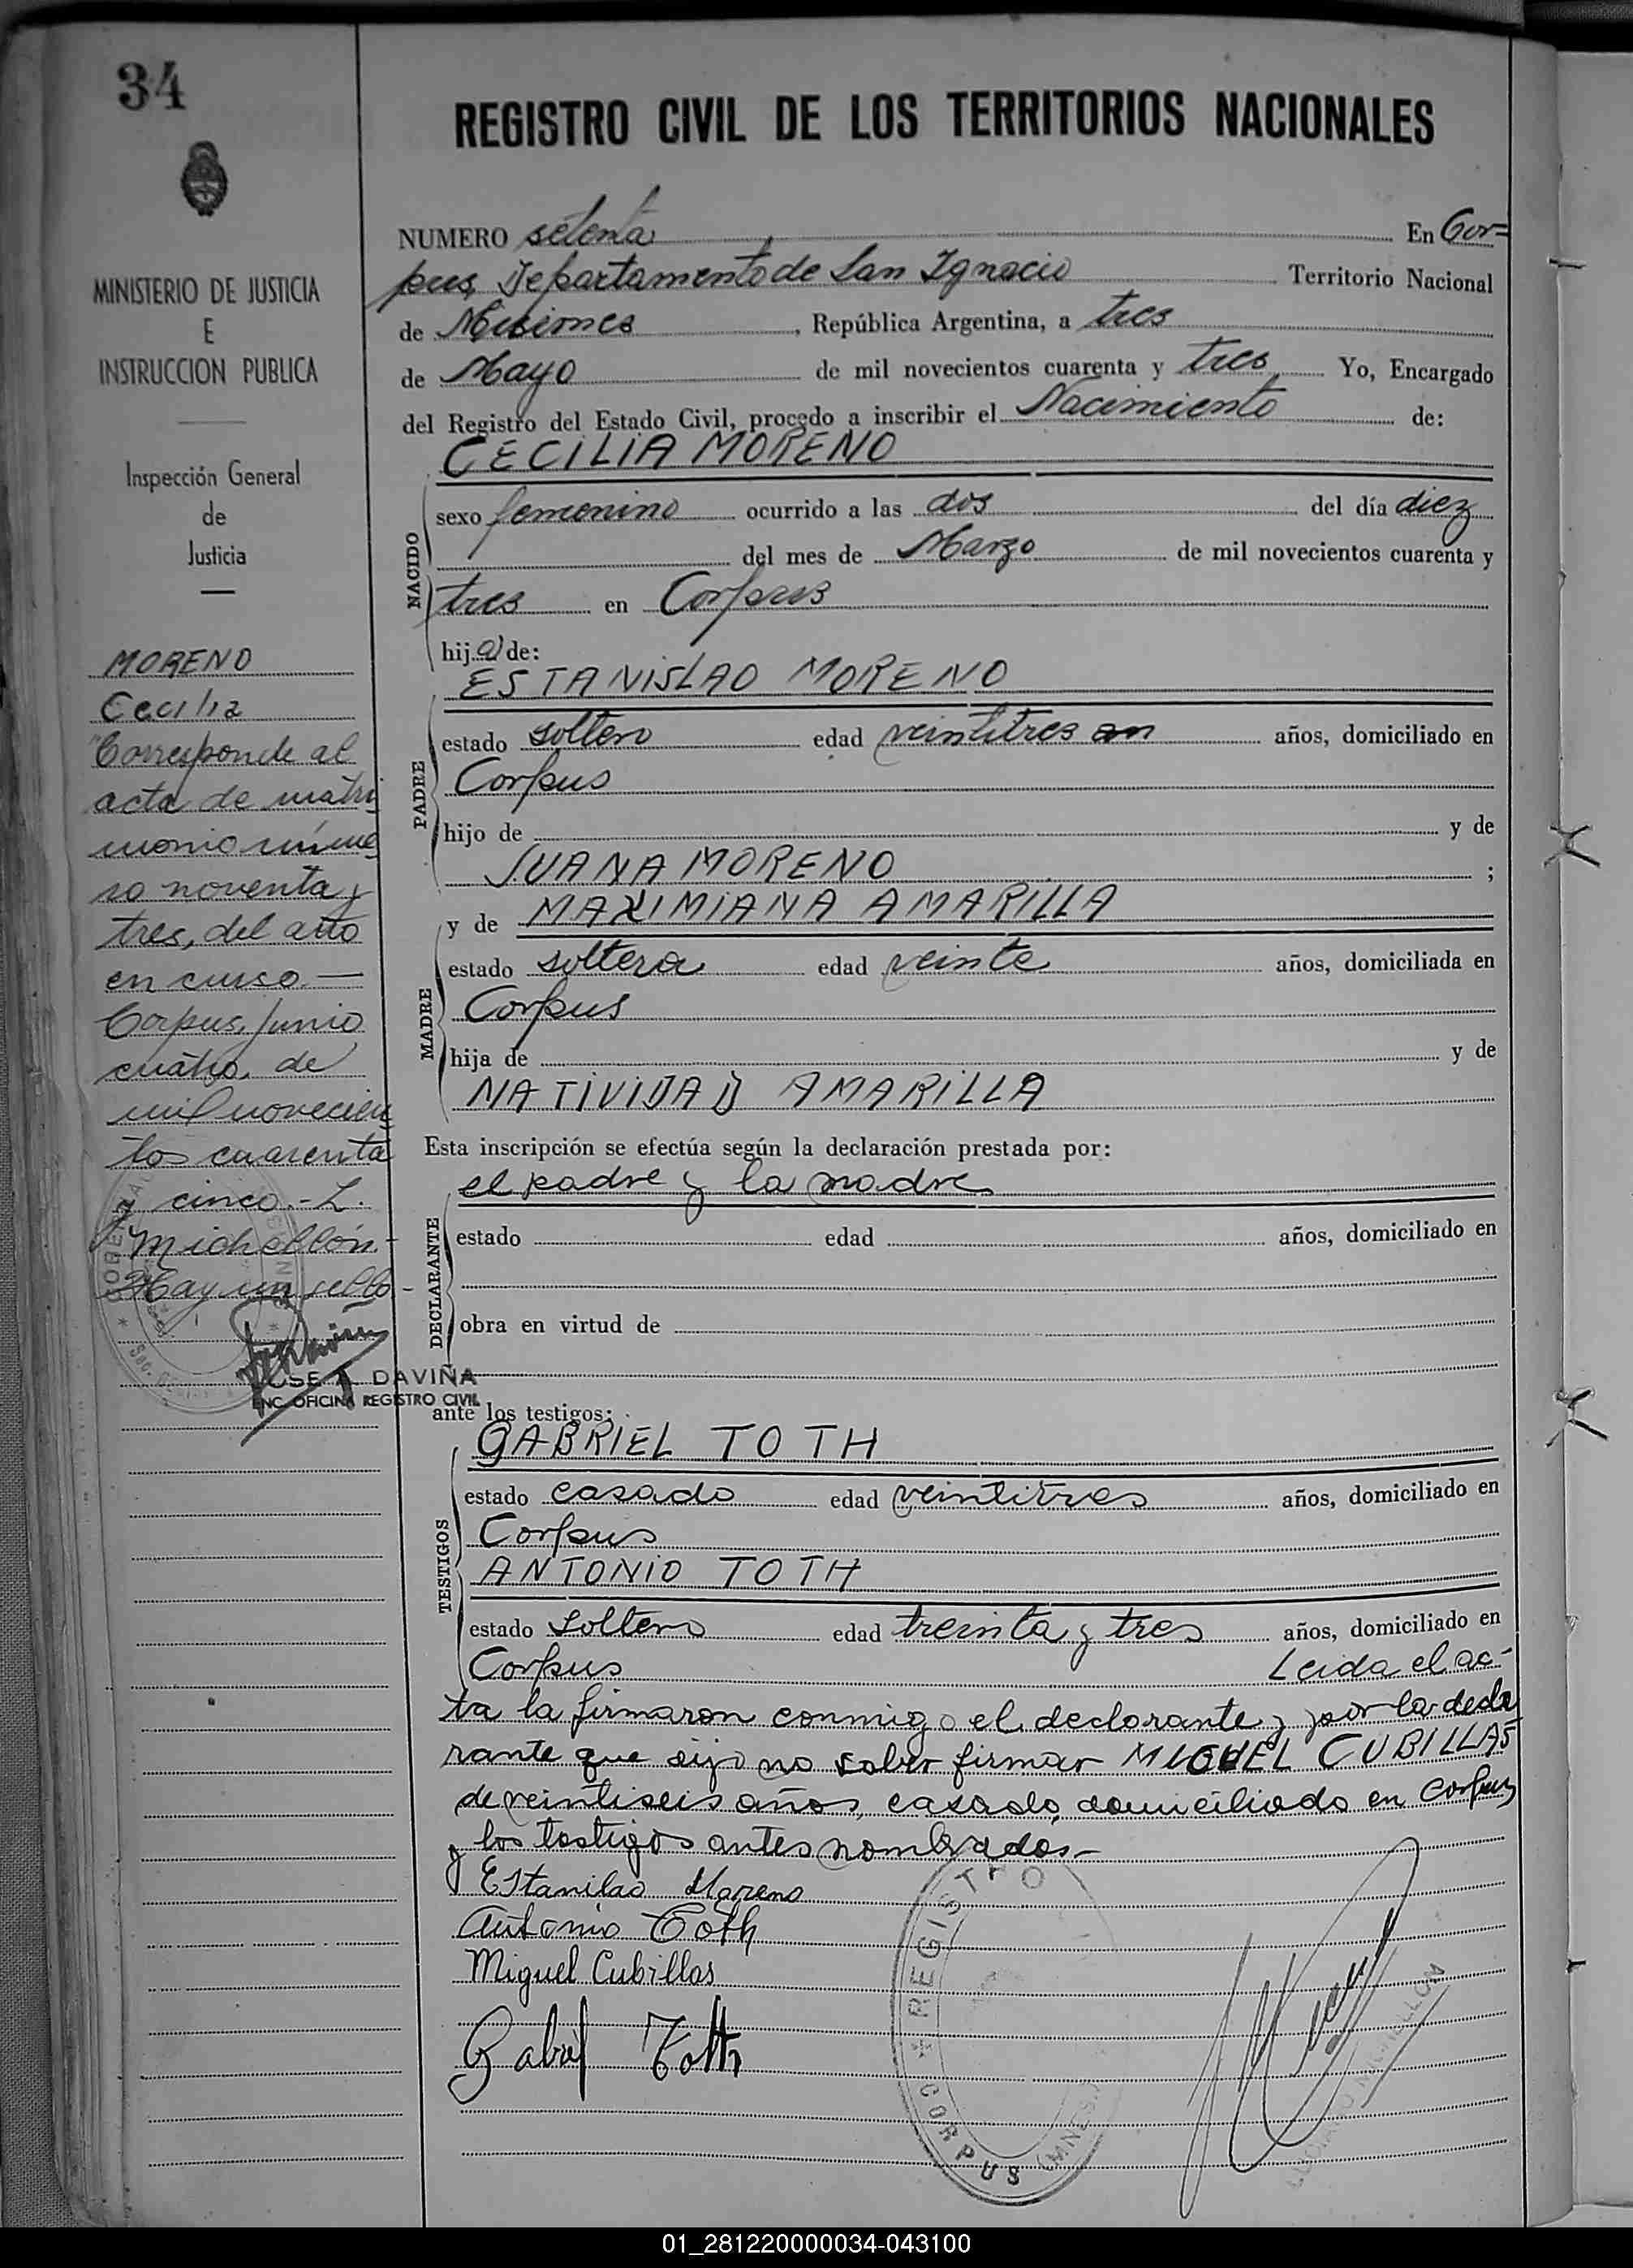 34
REGISTRO CIVIL DE LOS TERRITORIOS NACIONALES
MINISTERIO DE JUSTICIA
E
INSTRUCCION PUBLICA
Inspección General
de
Justicia
MORENO
Cecilia
"Corresponde al
acta de matri
monio núme
ro noventa y
tres, del año
en curso.—
Corpus, Junio
cuatro, de
mil novecien
tos cuarenta
y cinco.- L.
Michellón.-
Hay un sello-
JOSE A. DAVIÑA
ENC. OFICINA REGISTRO CIVIL
NUMERO setenta En Cor=
pus, Departamento de San Ignacio Territorio Nacional
de Misiones, República Argentina, a tres
de Mayo de mil novecientos cuarenta y tres Yo, Encargado
del Registro del Estado Civil, procedo a inscribir el Nacimiento de:
CECILIA MORENO
NACIDO
sexo femenino ocurrido a las dos del día diez
del mes de Marzo de mil novecientos cuarenta y
tres en Corpus
hija) de:
ESTANISLAO MORENO
PADRE
estado soltero edad veintitres an años, domiciliado en
Corpus
hijo de y de
JUANA MORENO ;
y de MAXIMIANA AMARILLA
MADRE
estado soltera edad veinte años, domiciliada en
Corpus
hija de y de
NATIVIDAD AMARILLA
Esta inscripción se efectúa según la declaración prestada por:
el padre y la madre
DECLARANTE
estado edad años, domiciliado en
obra en virtud de
ante los testigos:
GABRIEL TOTH
TESTIGOS
estado casado edad veintitres años, domiciliado en
Corpus
ANTONIO TOTH
estado soltero edad treinta y tres años, domiciliado en
Corpus Leida el ac-
ta la firmaron conmigo el declarante y por la decla
rante que dijo no saber firmar MIGUEL CUBILLAS
de veintiseis años, casado, domiciliado en Corpus
y los testigos antes nombrados.-
EStanilao Moreno
Antonio Toth
Miguel Cubillas
Gabriel Toth
REGISTRO
CORPUS
(MNES.)
LUCIANO MICHELLON
01_281220000034-043100